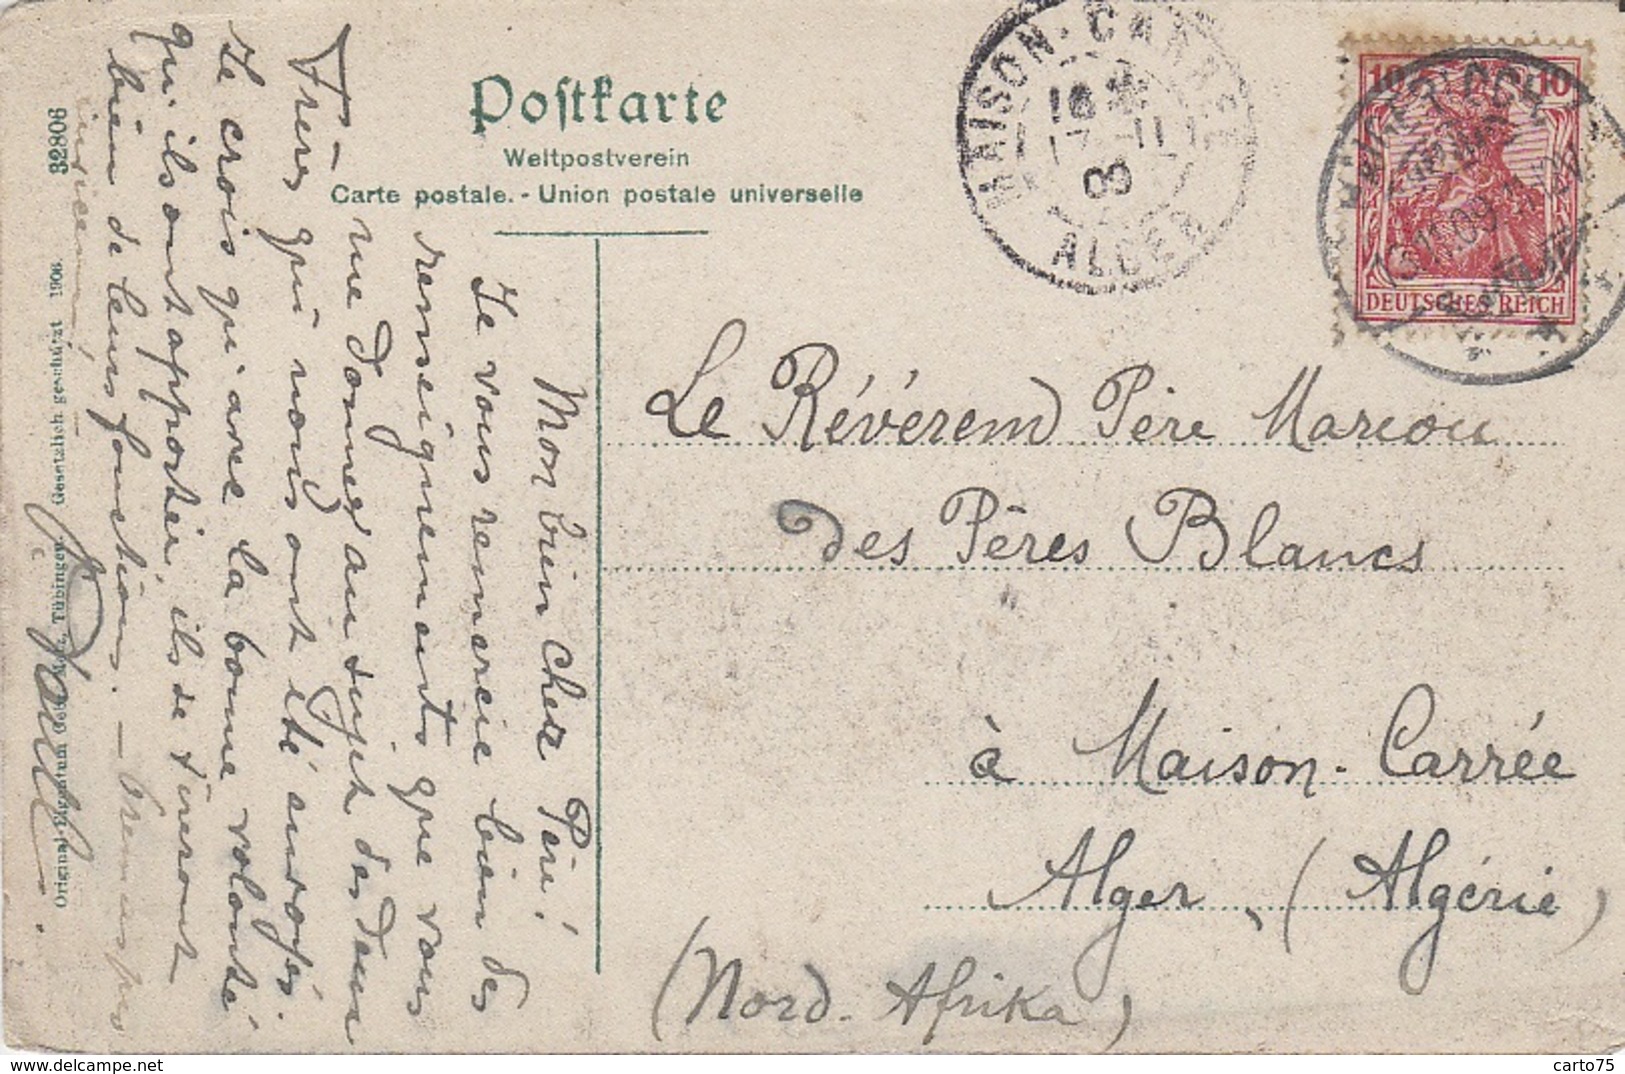 Postkarte
Weltpostverein
Carte postale. - Union postale universelle
32808
Gesetzlich geschützt 1906.
Original-Eigentum Tübingen.
MAISON-CARRÉE
ALGER
10 10
DEUTSCHES REICH
13.11.09
Mon bien cher Père!
Je vous remercie bien des
renseignements que vous
me donnez au sujet des deux
Frères qui nous ont été envoyés
Je crois qu'avec la bonne volonté
qu'ils ont apportée, ils se tireront
bien de leurs fonctions. —
Le Révérend Père Marcou
des Pères Blancs
à Maison-Carrée
Alger, (Algérie)
(Nord-Afrika)
carto75